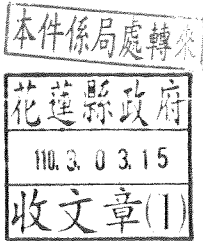 本件係局處轉來
花蓮縣政府
110. 3. 0 3. 15
收文章(1)